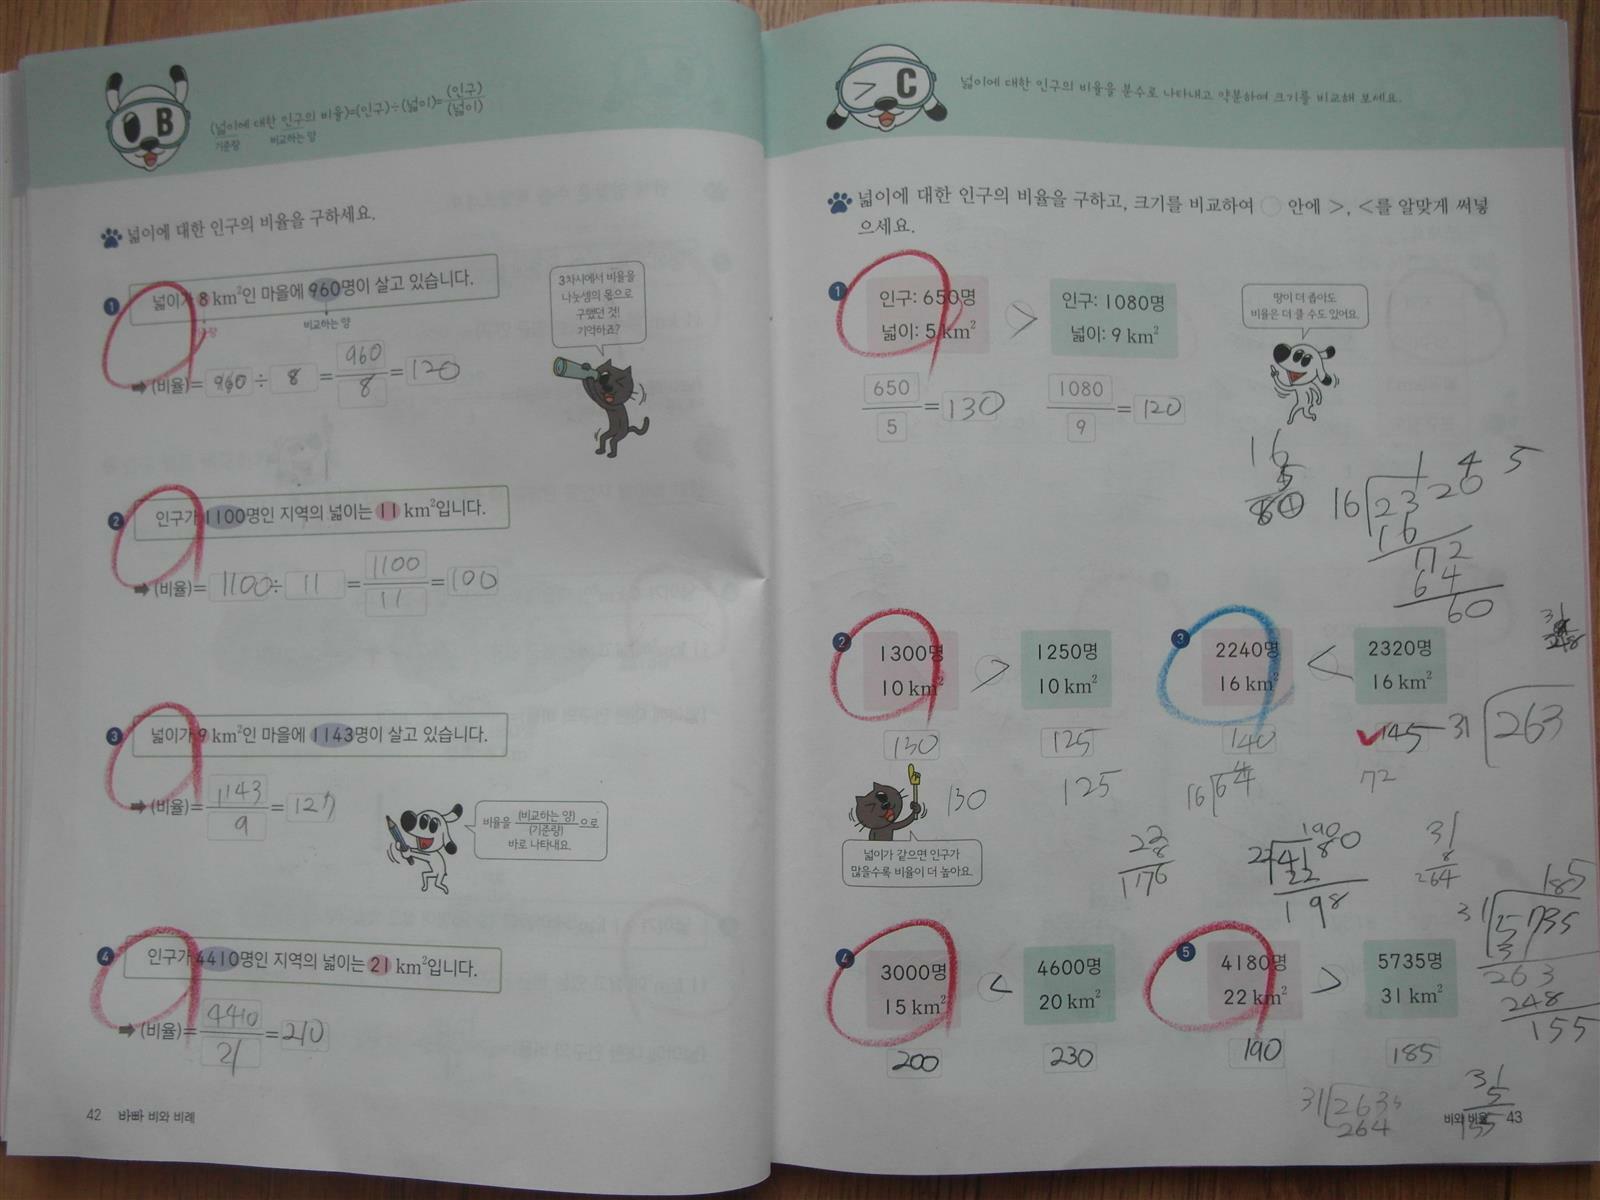 B
(넓이에 대한 인구의 비율)=(인구)÷(넓이)=(인구)/(넓이)
기준량 비교하는 양
넓이에 대한 인구의 비율을 구하세요.
1 넓이가 8 km²인 마을에 960명이 살고 있습니다.
비교하는 양
➡ (비율)= 960 ÷ 8 = 960/8 = 120
3차시에서 비율을
나눗셈의 몫으로
구했던 것!
기억하죠?
2 인구가 1100명인 지역의 넓이는 11 km²입니다.
➡ (비율)= 1100 ÷ 11 = 1100/11 = 100
3 넓이가 9 km²인 마을에 1143명이 살고 있습니다.
➡ (비율)= 1143/9 = 127
비율을 (비교하는 양)/(기준량)으로
바로 나타내요.
4 인구가 4410명인 지역의 넓이는 21 km²입니다.
➡ (비율)= 4410/21 = 210
42 바빠 비와 비례
C
넓이에 대한 인구의 비율을 분수로 나타내고 약분하여 크기를 비교해 보세요.
넓이에 대한 인구의 비율을 구하고, 크기를 비교하여 ○ 안에 >, <를 알맞게 써넣
으세요.
1 인구: 650명 > 인구: 1080명
넓이: 5 km² 넓이: 9 km²
650/5 = 130 1080/9 = 120
땅이 더 좁아도
비율은 더 클 수도 있어요.
16
5
145
16 2320
16
72
64
60
2 1300명 > 1250명
10 km² 10 km²
130 125
130 125
넓이가 같으면 인구가
많을수록 비율이 더 높아요.
3 2240명 < 2320명
16 km² 16 km²
140 145
4
16 64
72
31 263
22
8
1176
190
22 4180
22
198
31
8
264
185
31 5735
31
263
248
155
4 3000명 < 4600명
15 km² 20 km²
200 230
5 4180명 > 5735명
22 km² 31 km²
190 185
31 263
264
31
5
155
비와 비율 43